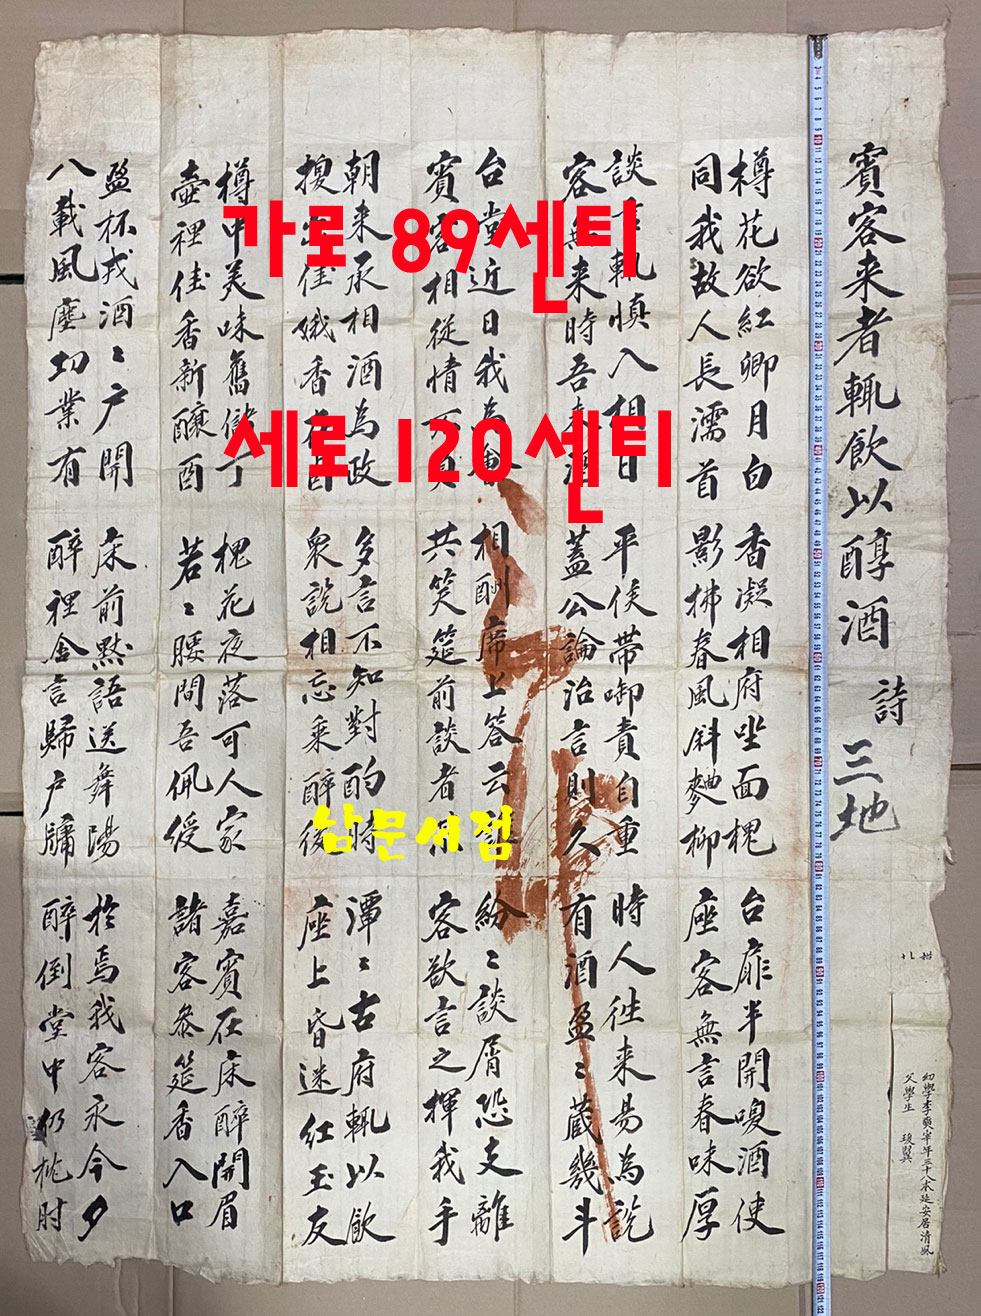 賓客来者輒飲以醇酒 詩 三地
樽花欲紅卿月白 香凝相府坐面槐 台扉半開嗅酒使
同我故人長濡首 影拂春風斜麯柳 座客無言春味厚
談言輒慎入相日 平侯帶啣責自重 時人徃来易為説
客無来時吾来酒 蓋公論治言則久 有酒盈〻蔵幾斗
台堂近日我為 相酬席上答云 紛〻談屑恐支離
賓客相從情不負 共笑筵前談者 客欲言之揮我手
朝来承相酒為政 多言不知對酌時 潭〻古府輒以飲
搜佳娥香 衆説相忘乗醉後 座上昏迷紅玉友
樽中美味舊儲丁 槐花夜落可人家 嘉賓在床醉開眉
壺裡佳香新釀酉 若〻腰間吾佩綬 諸客叅筵香入口
盈杯戎酒〻戸開 床前黙語送舞陽 於焉我客永今夕
八載風塵功業有 醉裡含言歸戸牖 醉倒堂中仍枕肘
幼學李奭寧年三十八本延安居清風
父學生 翼
가로 89센티
세로 120센티
남문서점